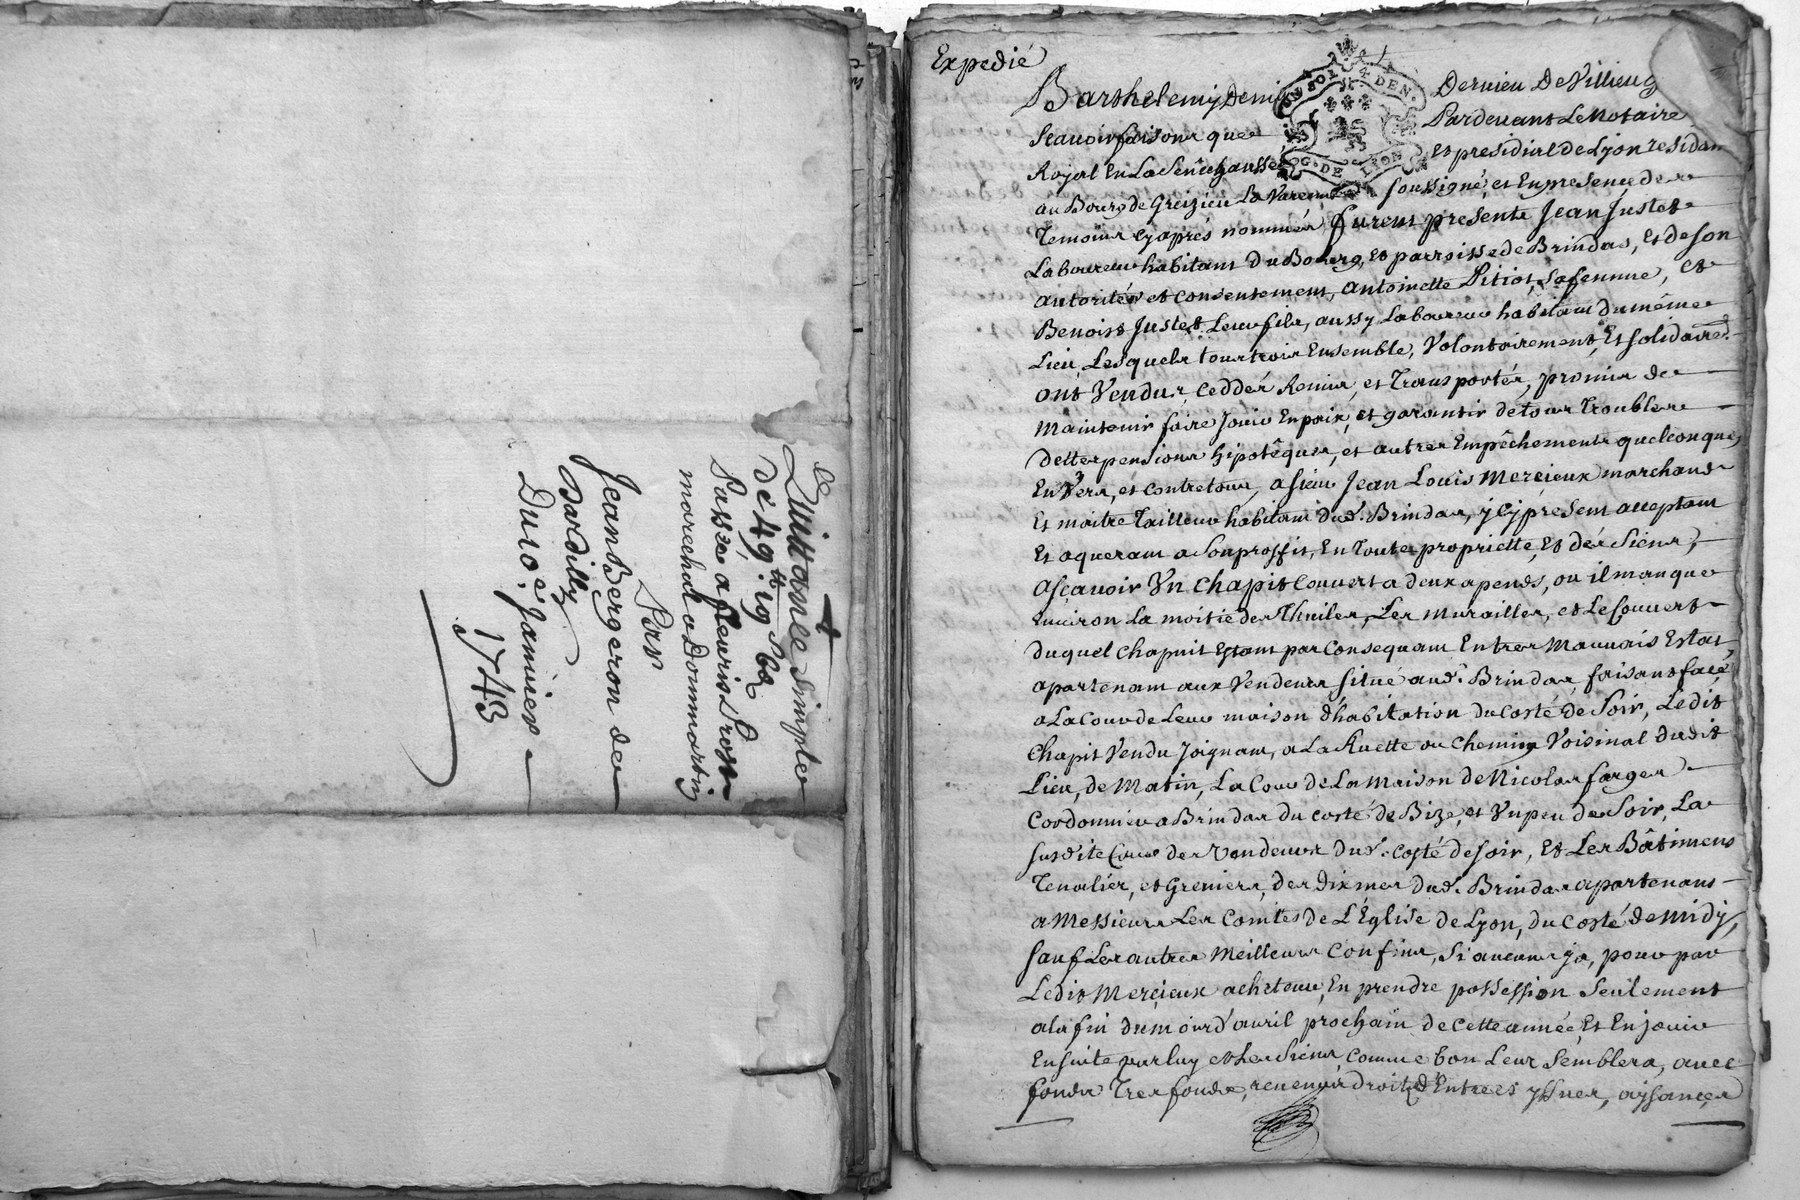 Quittance simple
de 49.tt 19 s 
Passée a fleuris Prost
marechal a Dommartin
Par
Jean Bergeron de
Bardilly
Du 10e. Janvier
1743
Expedié
Barthelemy Denis Dervieu De Villieu
Scavoir faisons que Pardevant Le Notaire
Royal En La Senéchaussée et presidial de Lyon residan
au Bourg de Greizieu La Varenne soussigné, et En presence des
Temoins cy aprés nommés furent presents Jean Justet
Laboureur habitant Du Bourg, et parroisse de Brindas, et de son
autoritée et consentement, antoinette Pitiot, sa femme, et
Benoist Justet Leur fils, aussy Laboureur habitant du même
Lieu, Lesquels tous trois Ensemble, Volontairement, Et solidaires
ont Vendus, cedder Remis, et Transportés, promis de
maintenir faire Jouir En paix, et garantir de tous Troubles
dettes pensions hipotêques, et autres Empêchements quelconques
Envers, et contre tous, a sieur Jean Louis Mercieux marchand
Et maitre Tailleur habitant dud. Brindas, y cy present acceptant
Et aquerant a Son proffit, En Toute propriette, Et des Siens,
Asçavoir Un Chapit Couvert a deux apends, ou il manque
Environ La moitié des Thuiles, Les murailles, et Le Couvert
duquel chapit Estant par Consequant En tres Mauvais Estat
apartenant aux Vendeurs situé aud. Brindas, faisant face
a La Cour de Leur maison d'habitation du Costé de Soir, Ledit
Chapit Vendu Joignant, a La Ruette ou Chemin Voisinal dudit
Lieu, de Matin, La Cour de La Maison de Nicolas farges
Cordonnier a Brindas du costé de Bize, et Un peu de Soir, La
susdite Cour des Vendeurs dud. costé de soir, Et Les Bâtimens
Tenalier, et Greniers, des dixmes dud. Brindas apartenans
a Messieurs Les Comtes de L'Église de Lyon, du Costé de midy,
sauf Les autres Meilleurs Confins, Si aucuns y a, pour par
Ledit Mercieux acheteur, En prendre possession Seulement
a la fin du mois d'avril prochain de cette année Et En jouir
Ensuite par luy et les Siens comme bon Leur Semblera, avec
fonds Tres fonds, revenus droits d'Entrées yssues, aysances